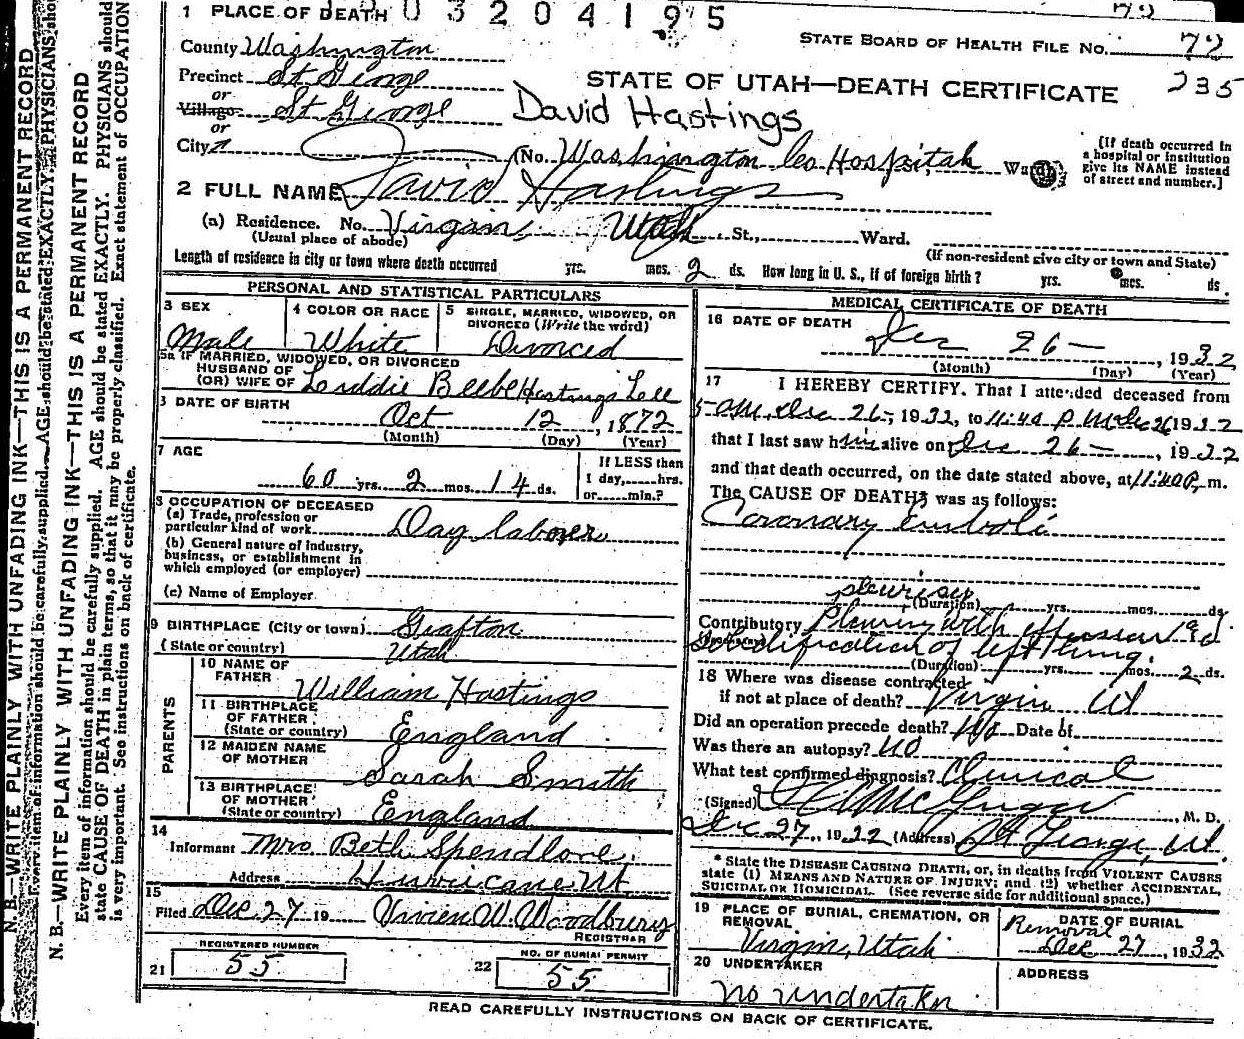 N. B.—WRITE PLAINLY WITH UNFADING INK—THIS IS A PERMANENT RECORD
Every item of information should be carefully supplied. AGE should be stated EXACTLY. PHYSICIANS
N. B.—WRITE PLAINLY WITH UNFADING INK—THIS IS A PERMANENT RECORD
Every item of information should be carefully supplied. AGE should be stated EXACTLY. PHYSICIANS should
state CAUSE OF DEATH in plain terms, so that it may be properly classified. Exact statement of OCCUPATION
is very important. See instructions on back of certificate.
1 PLACE OF DEATH 0 3 2 0 4 1 9 5
STATE BOARD OF HEALTH FILE NO. 72
235
County Washington
Precinct St George
STATE OF UTAH—DEATH CERTIFICATE
or
Village St George
David Hastings
or
City
(No. Washington Co Hospital, Ward)
[If death occurred in
a hospital or institution
give its NAME instead
of street and number.]
2 FULL NAME David Hastings
(a) Residence. No. Virgin, Utah St., Ward.
(Usual place of abode)
(If non-resident give city or town and State)
Length of residence in city or town where death occurred yrs. mos. 2 ds. How long in U. S., if of foreign birth? yrs. mos. ds.
PERSONAL AND STATISTICAL PARTICULARS
3 SEX
Male
4 COLOR OR RACE
White
5 SINGLE, MARRIED, WIDOWED, OR
DIVORCED (Write the word)
Divorced
5a IF MARRIED, WIDOWED, OR DIVORCED
HUSBAND OF
(OR) WIFE OF Beebe Hastings Lee
DATE OF BIRTH
Oct 12, 1872
(Month) (Day) (Year)
7 AGE
60 yrs. 2 mos. 14 ds.
If LESS than
1 day, hrs.
or min.?
8 OCCUPATION OF DECEASED
(a) Trade, profession or
particular kind of work Day laborer
(b) General nature of industry,
business, or establishment in
which employed (or employer)
(c) Name of Employer
9 BIRTHPLACE (City or town) Grafton
(State or country) Utah
PARENTS
10 NAME OF
FATHER William Hastings
11 BIRTHPLACE
OF FATHER
(State or country) England
12 MAIDEN NAME
OF MOTHER Sarah Smith
13 BIRTHPLACE
OF MOTHER
(State or country) England
14
Informant Mrs Beth Spendlove.
Address Hurricane Ut
15
Filed Dec 27 19 Vivien W. Woodbury
REGISTRAR
REGISTERED NUMBER
21 55
NO. OF BURIAL PERMIT
22 55
MEDICAL CERTIFICATE OF DEATH
16 DATE OF DEATH
Dec 26—, 1932
(Month) (Day) (Year)
17 I HEREBY CERTIFY, That I attended deceased from
5 AM, Dec 26, 1932, to 11:40 P M Dec 26 1932
that I last saw him alive on Dec 26—, 1932
and that death occurred, on the date stated above, at 11:40 P, m.
The CAUSE OF DEATH* was as follows:
Coronary Emboli
pleurisy
(Duration) yrs. mos. ds.
Contributory Pleurisy with effusion and
Solidification of left lung.
(Duration) yrs. mos. 2 ds.
18 Where was disease contracted
if not at place of death? Virgin Ut
Did an operation precede death? No Date of
Was there an autopsy? No
What test confirmed diagnosis? Clinical
(Signed) McGregor, M. D.
Dec 27, 1932 (Address) St George, Ut.
* State the DISEASE CAUSING DEATH, or, in deaths from VIOLENT CAUSES
state (1) MEANS AND NATURE OF INJURY; and (2) whether ACCIDENTAL,
SUICIDAL OR HOMICIDAL. (See reverse side for additional space.)
19 PLACE OF BURIAL, CREMATION, OR
REMOVAL
Virgin, Utah
DATE OF BURIAL
Removal
Dec 27, 1932
20 UNDERTAKER
No undertaker
ADDRESS
READ CAREFULLY INSTRUCTIONS ON BACK OF CERTIFICATE.